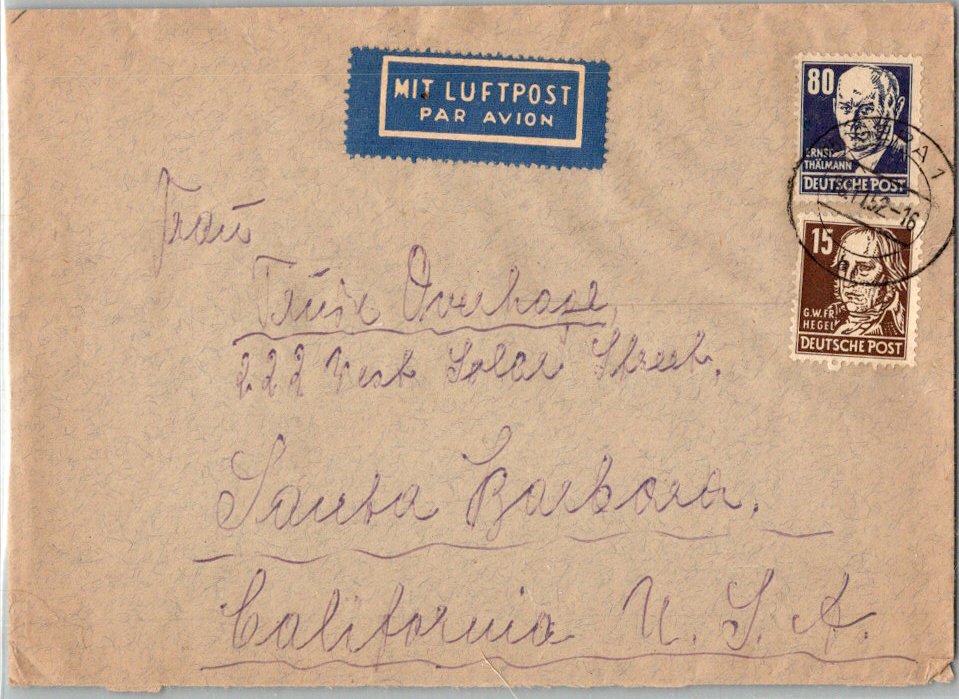 MIT LUFTPOST
PAR AVION
80
ERNST
THÄLMANN
DEUTSCHE POST
A 1
52-16
15
G.W.FR.
HEGEL
DEUTSCHE POST
Frau
Overhage
222 West Street.
Santa Barbara.
California U. S. A.